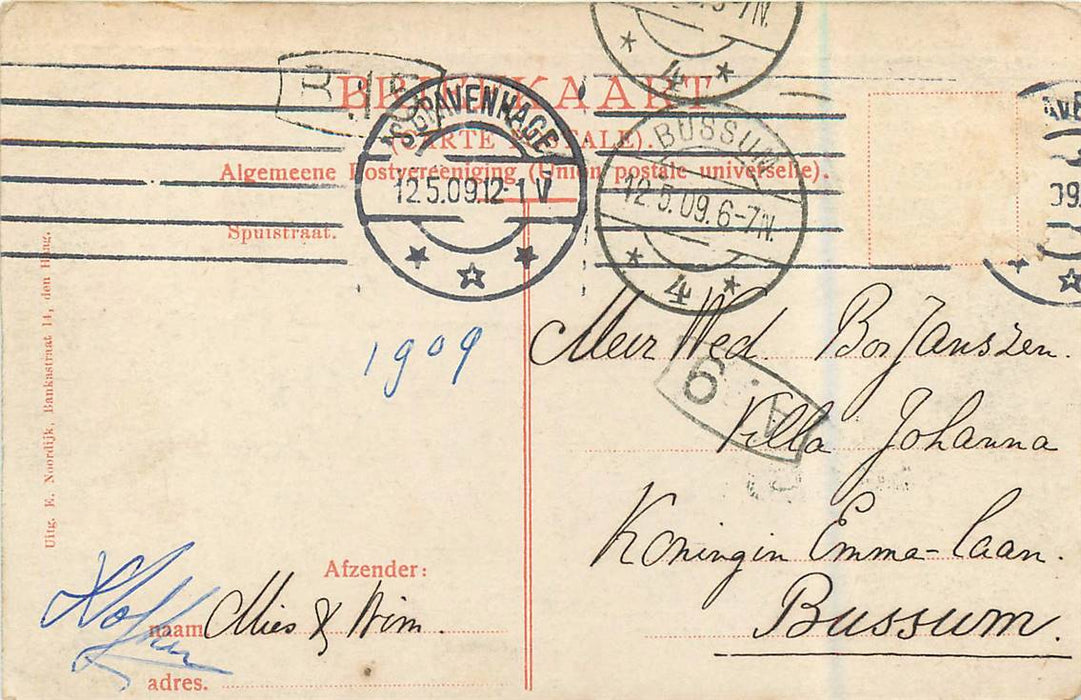 BRIEFKAART
(CARTE POSTALE).
Algemeene Postvereeniging (Union postale universelle).
Spuistraat.
'S GRAVENHAGE
12.5.09.12-1 V
BUSSUM
12.5.09.6-7N.
4
4
-7N.
09
1909
Mevr Wed. Bos Janszen.
6 A
Villa Johanna
Koningin Emma-laan.
Bussum.
Uitg. E. Noordijk, Bankastraat 14, den Haag.
Afzender:
naam Mies & Wim.
adres.